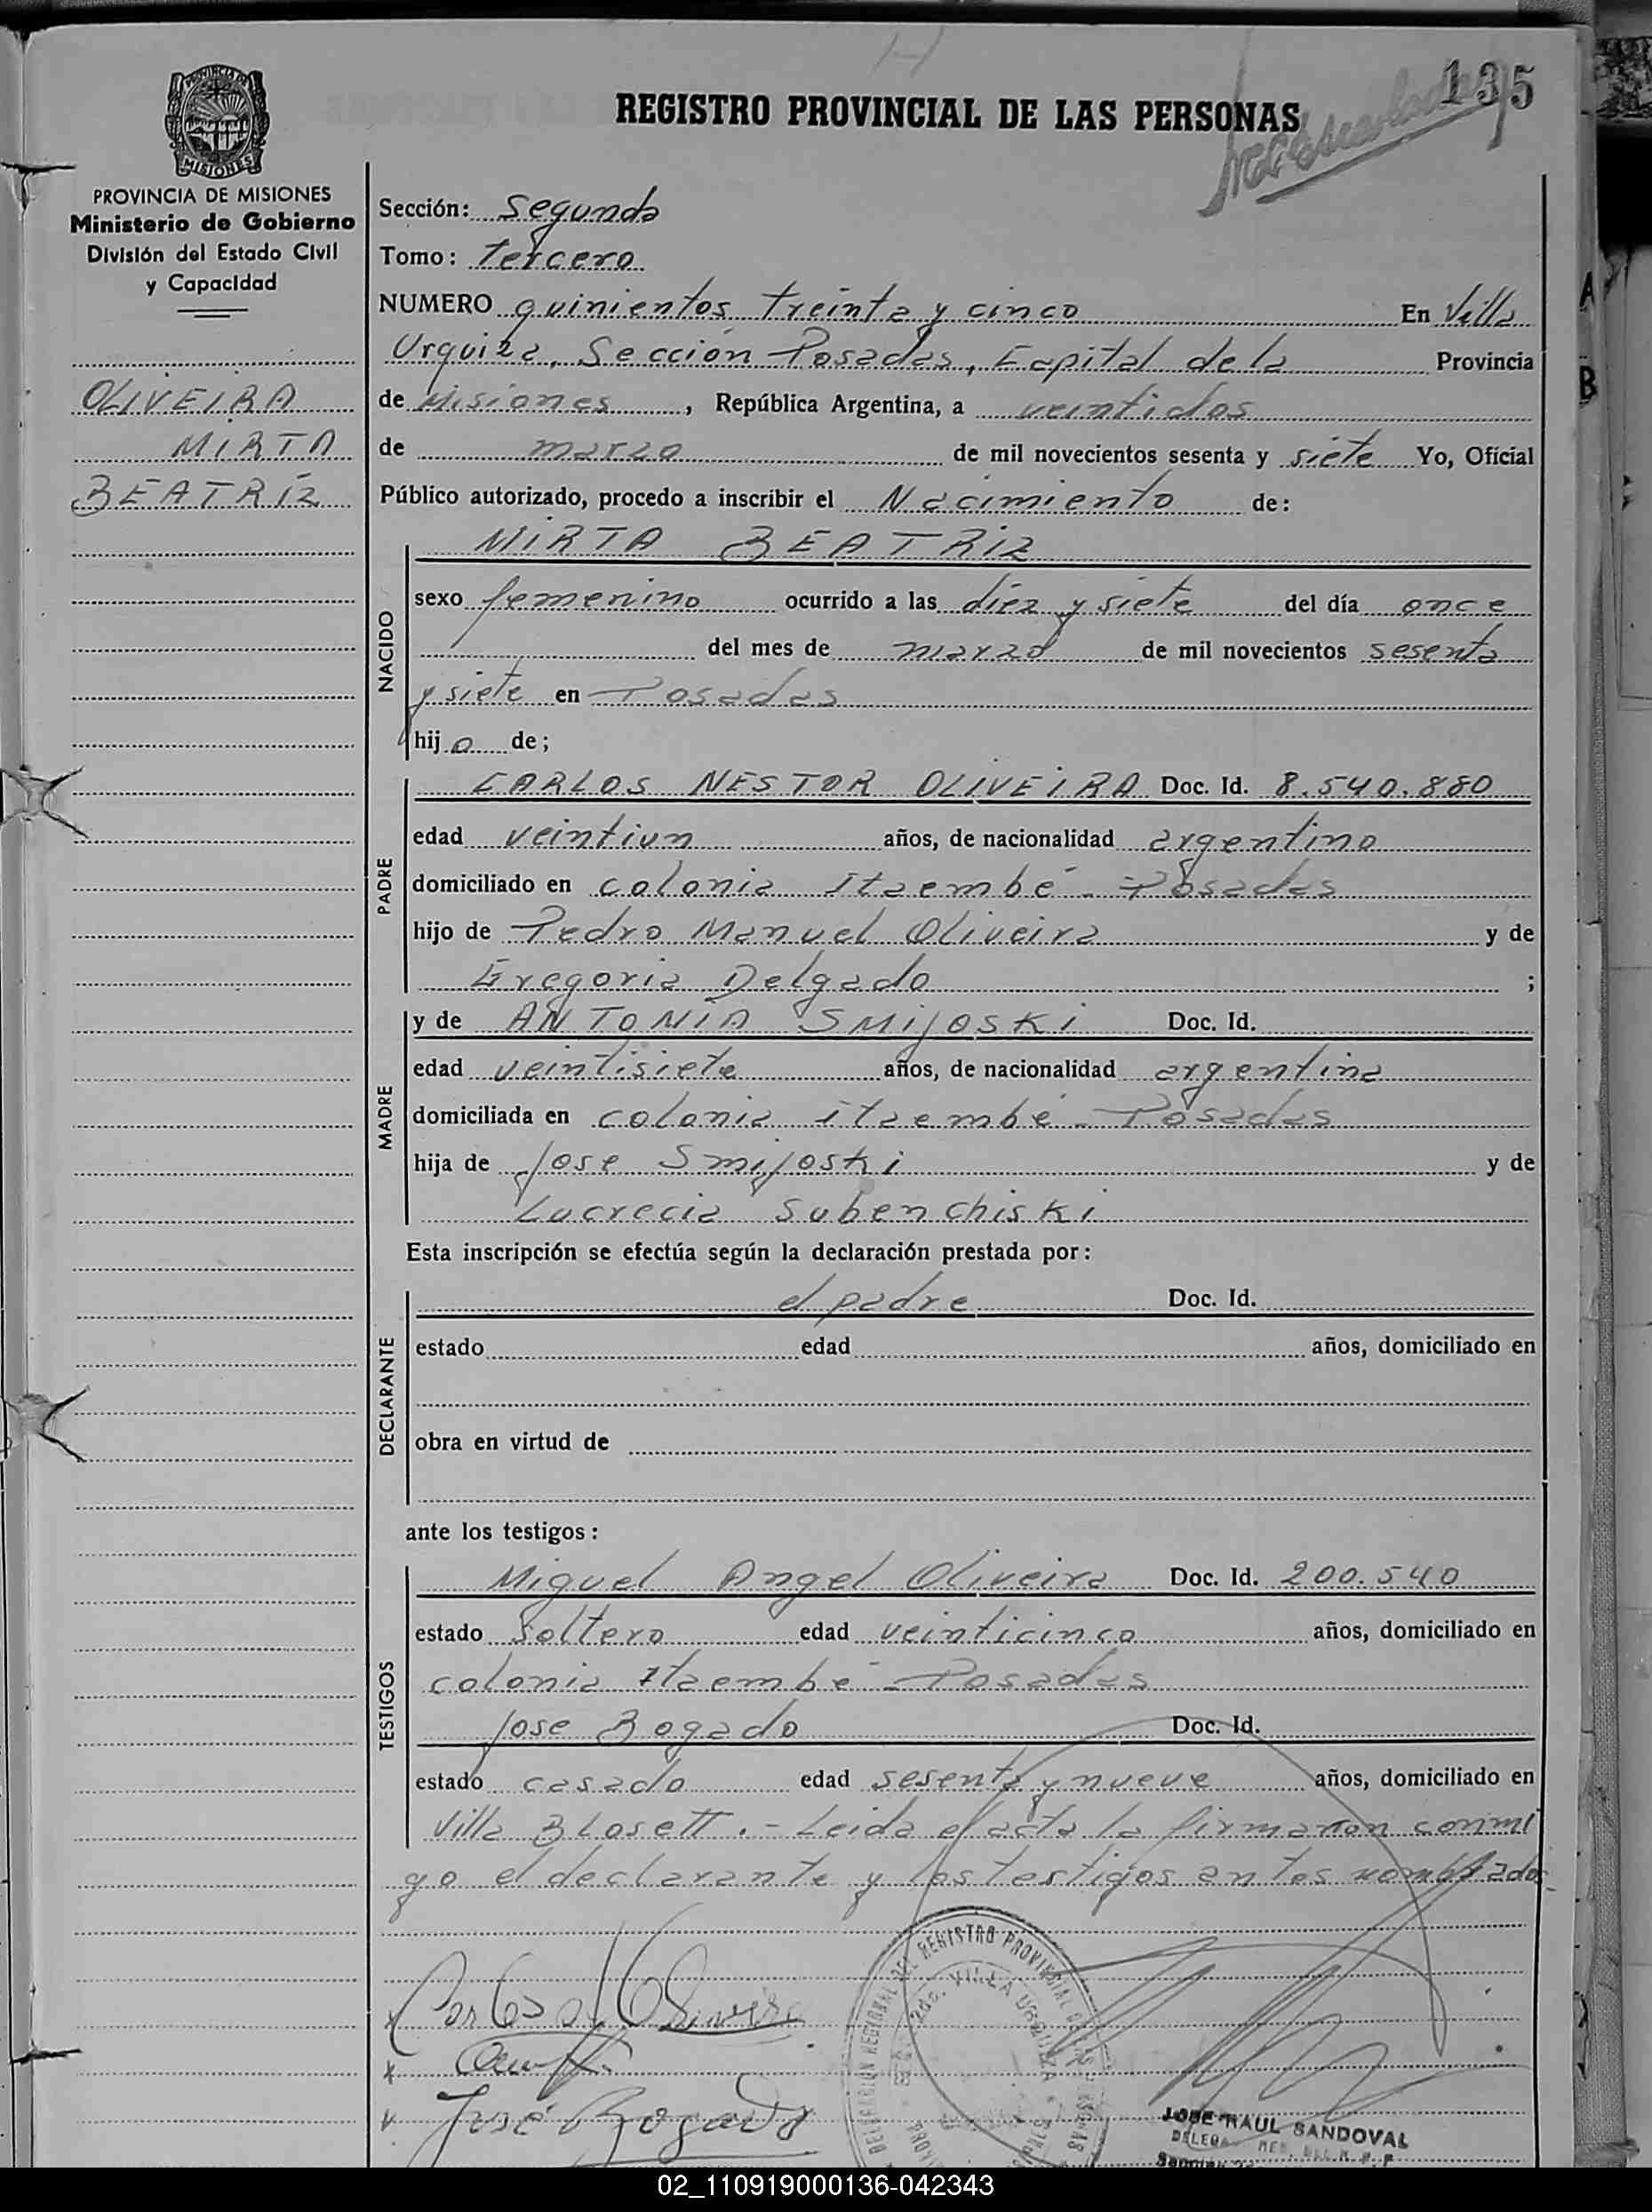 135
REGISTRO PROVINCIAL DE LAS PERSONAS
PROVINCIA DE
MISIONES
PROVINCIA DE MISIONES
Ministerio de Gobierno
División del Estado Civil
y Capacidad
OLIVEIRA
MIRTA
BEATRÍZ
Sección: Segunda
Tomo: tercero
NUMERO quinientos treinta y cinco En Villa
Urquiza, Sección Posadas, Capital de la Provincia
de Misiones, República Argentina, a veintidos
de marzo de mil novecientos sesenta y siete Yo, Oficial
Público autorizado, procedo a inscribir el Nacimiento de:
MIRTA BEATRIZ
NACIDO
sexo femenino ocurrido a las diez y siete del día once
del mes de marzo de mil novecientos sesenta
y siete en Posadas
hija de;
PADRE
CARLOS NESTOR OLIVEIRA Doc. Id. 8.540.880
edad veintiun años, de nacionalidad argentino
domiciliado en colonia Itaembé - Posadas
hijo de Pedro Manuel Oliveira y de
Gregoria Delgado ;
MADRE
y de ANTONIA SMIJOSKI Doc. Id.
edad veintisiete años, de nacionalidad argentina
domiciliada en colonia itaembé - Posadas
hija de Jose Smijoski y de
Lucrecia Subenchiski
Esta inscripción se efectúa según la declaración prestada por:
DECLARANTE
el padre Doc. Id.
estado edad años, domiciliado en
obra en virtud de
ante los testigos:
TESTIGOS
Miguel Angel Oliveira Doc. Id. 200.540
estado Soltero edad veinticinco años, domiciliado en
colonia Itaembé - Posadas
Jose Bogado Doc. Id.
estado casado edad sesenta y nueve años, domiciliado en
Villa Blosett.- Leida el acta la firmaron conmi
go el declarante y los testigos antes nombrados-
Carlos N Oliveira
José Bogado
DELEGACION REGIONAL DEL REGISTRO PROVINCIAL DE LAS PERSONAS
2da. VILLA URQUIZA
JOSE RAUL SANDOVAL
02_110919000136-042343